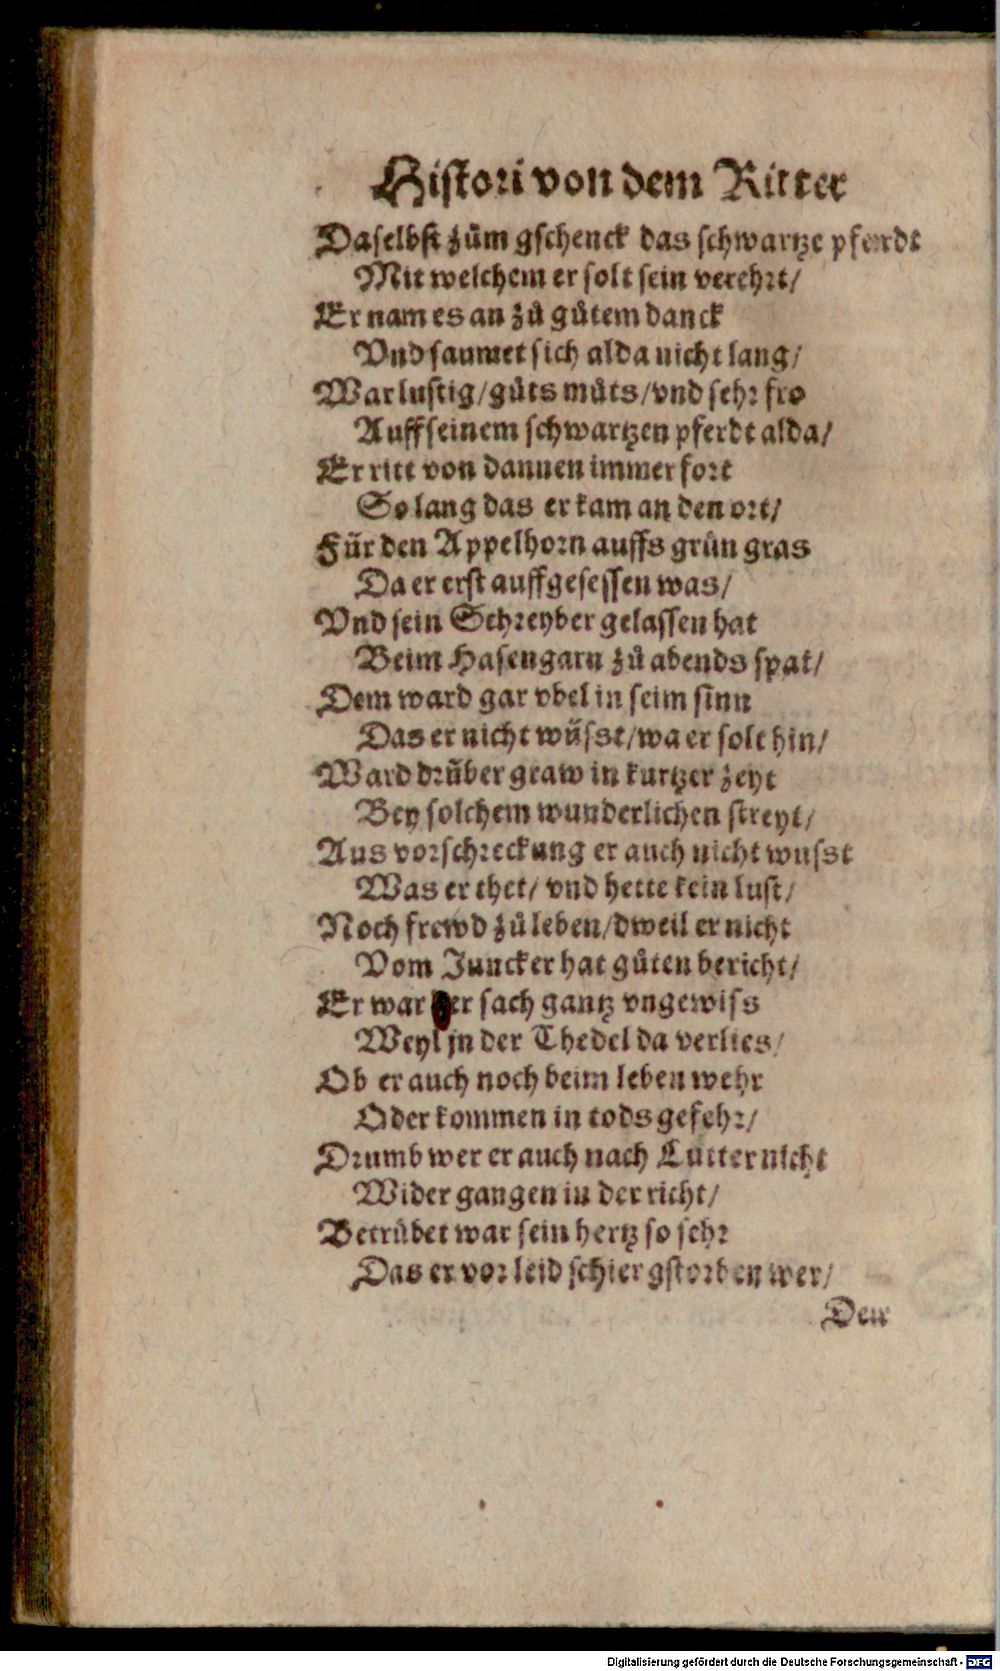 Histori von dem Ritter
Daselbst zům gschenck das schwartze pferdt
Mit welchem er solt sein verehrt/
Er nam es an zů gůtem danck
Vnd saumet sich alda nicht lang/
War lustig/gůts můts/vnd sehr fro
Auff seinem schwartzen pferdt alda/
Er ritt von dannen immer fort
So lang das er kam an den ort/
Für den Appelhorn auffs grün gras
Da er erst auffgesessen was/
Vnd sein Schreyber gelassen hat
Beim Hasengarn zů abends spat/
Dem ward gar vbel in seim sinn
Das er nicht wüsst/wa er solt hin/
Ward drüber graw in kurtzer zeyt
Bey solchem wunderlichen streyt/
Aus vorschreckung er auch nicht wusst
Was er thet/ vnd hette kein lust/
Noch frewd zů leben/dweil er nicht
Vom Juncker hat gůten bericht/
Er war der sach gantz vngewiss
Weyl jn der Thedel da verlies/
Ob er auch noch beim leben wehr
Oder kommen in tods gefehr/
Drumb wer er auch nach Lutter nicht
Wider gangen in der richt/
Betrübet war sein hertz so sehr
Das er vor leid schier gstorben wer/
Den
Digitalisierung gefördert durch die Deutsche Forschungsgemeinschaft - DFG